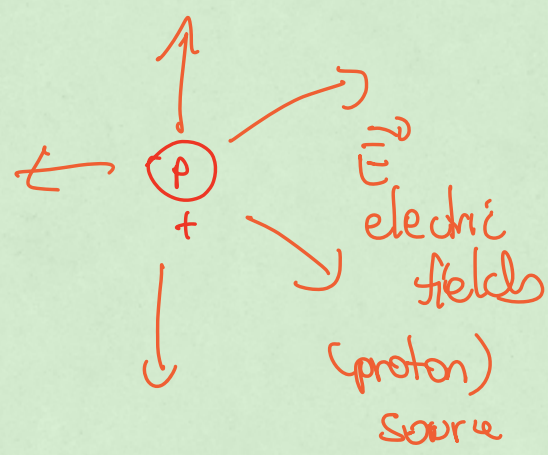 p
+
E
electric
fields
(proton)
source